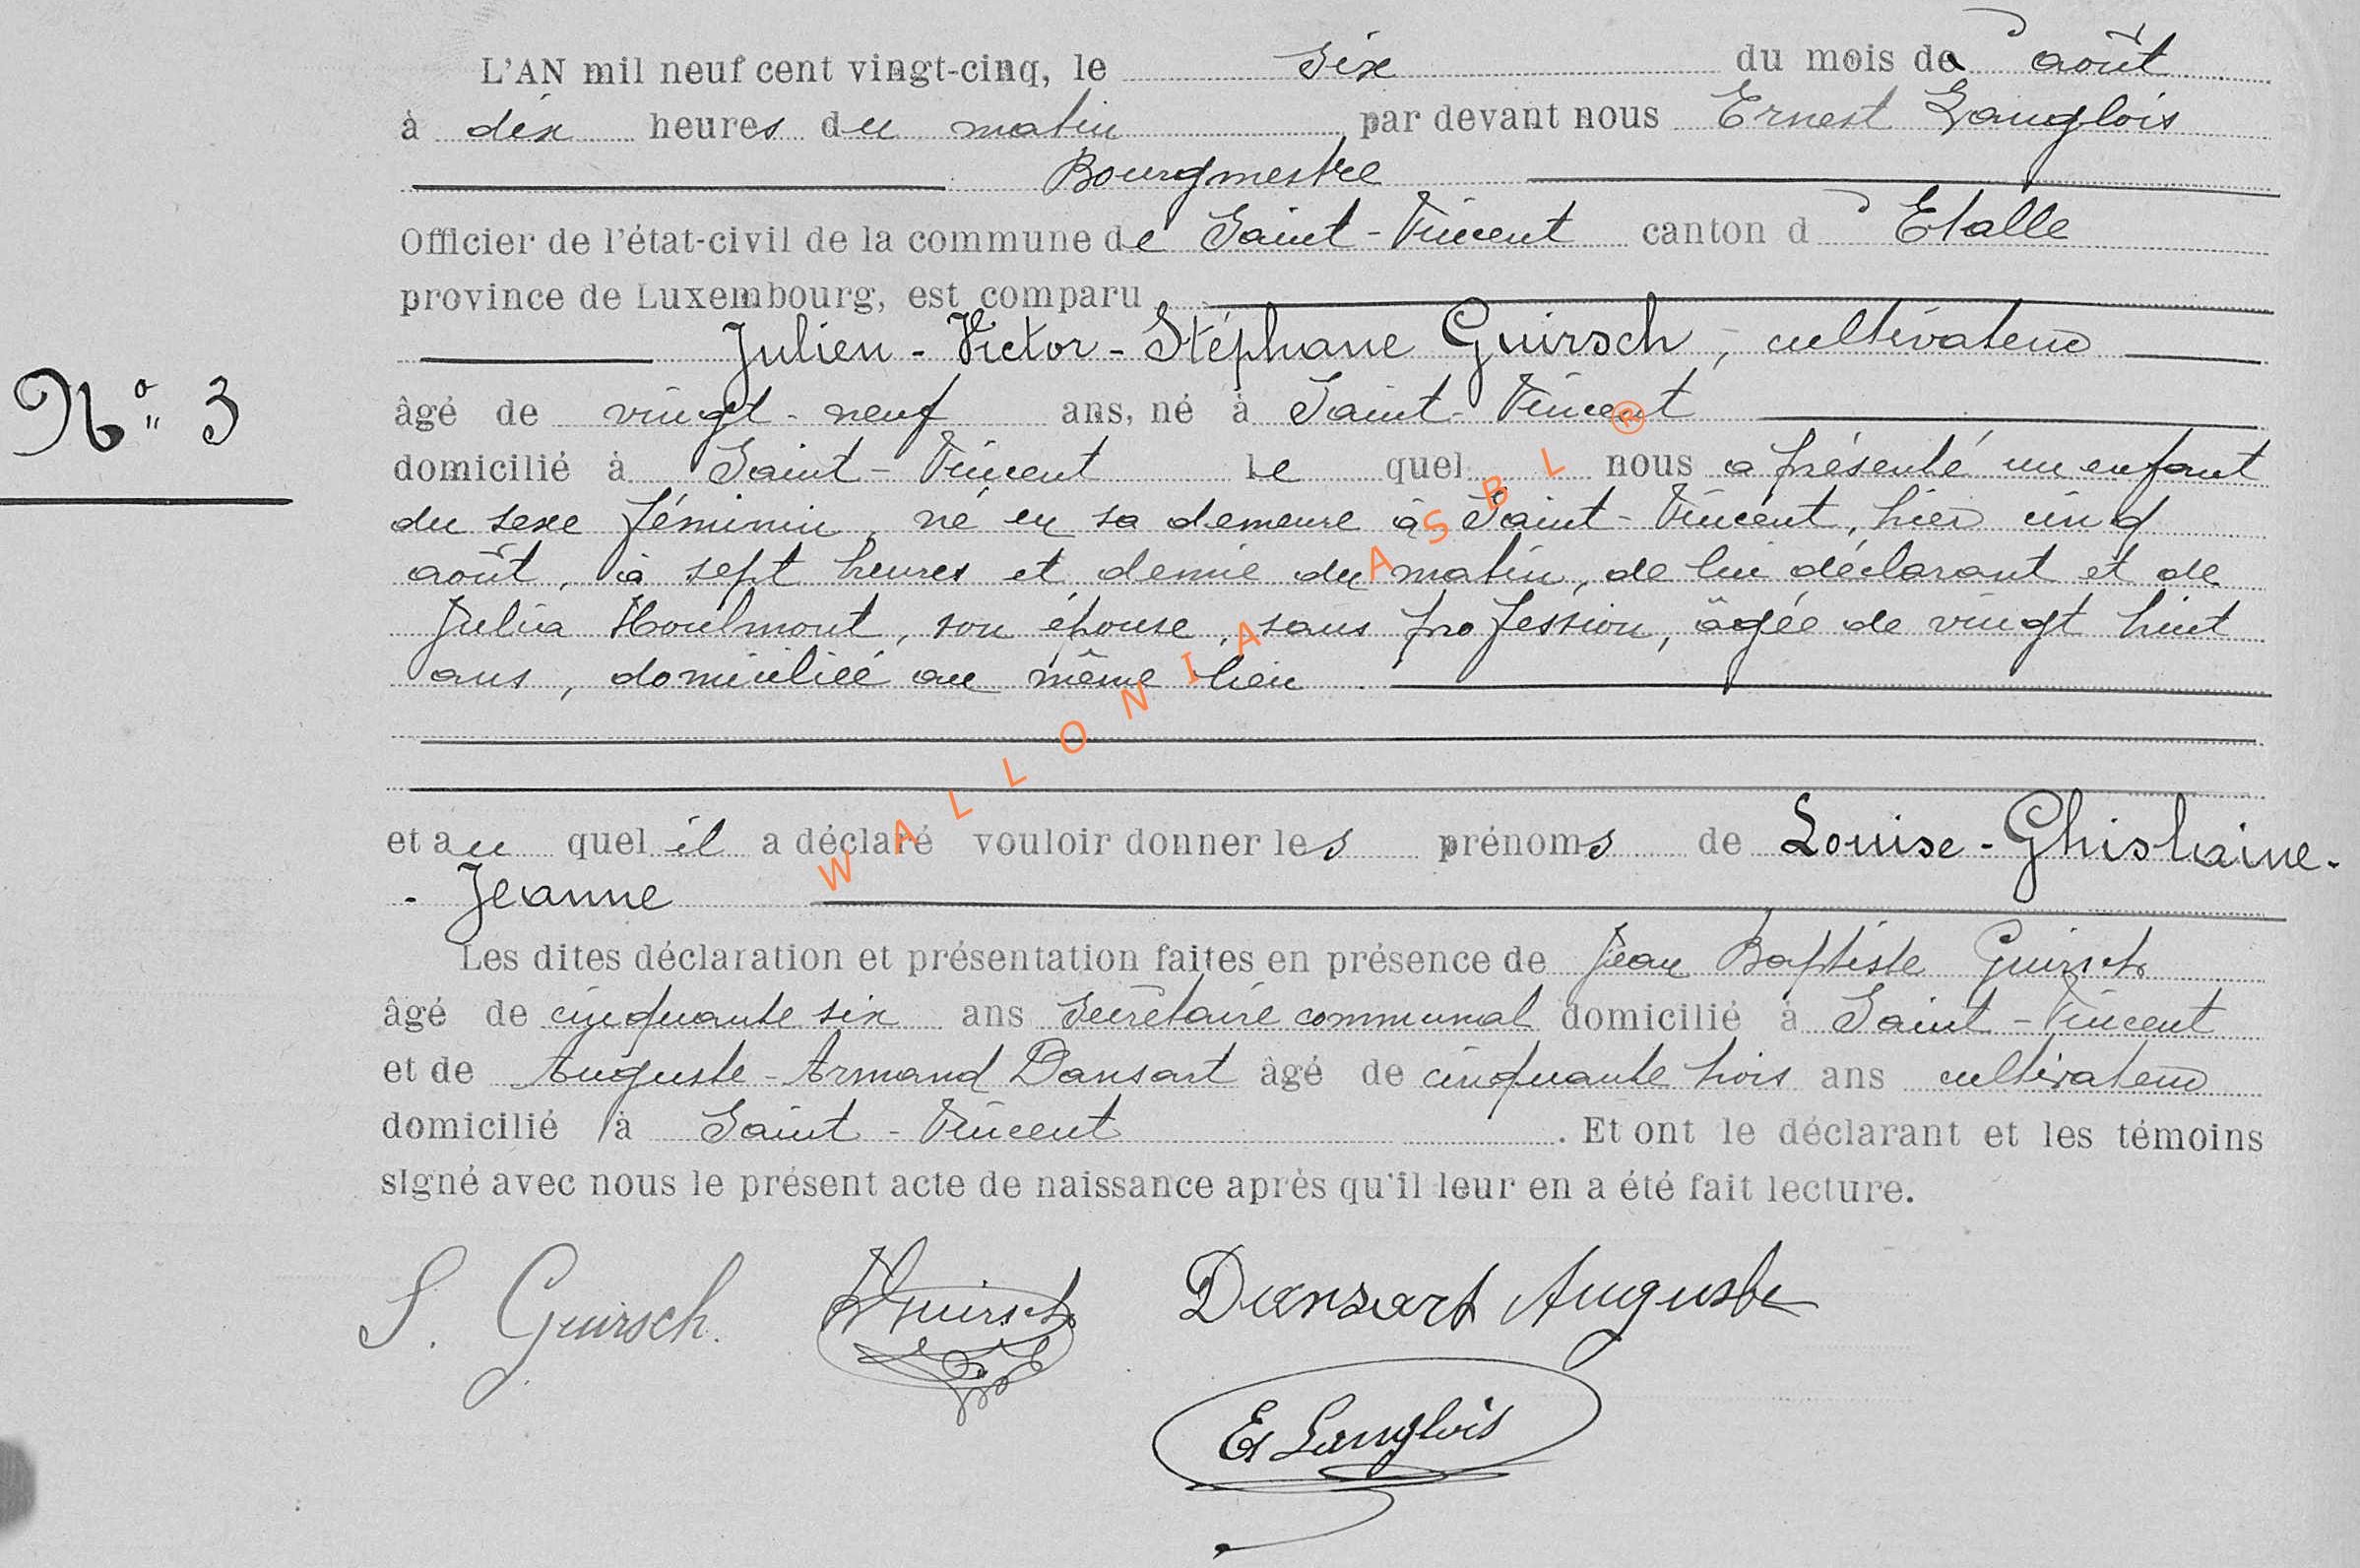 L'AN mil neuf cent vingt-cinq, le six du mois de août
à dix heures du matin par devant nous Ernest Langlois
Bourgmestre
Officier de l'état-civil de la commune de Saint-Vincent canton d'Etalle
province de Luxembourg, est comparu
Julien-Victor-Stéphane Guirsch, cultivateur
N° 3
âgé de vingt-neuf ans, né à Saint-Vincent
domicilié à Saint-Vincent lequel nous a présenté un enfant
du sexe féminin, né en sa demeure à Saint-Vincent, hier cinq
août, à sept heures et demie du matin, de lui déclarant et de
Julia Houlmont, son épouse, sans profession, âgée de vingt huit
ans, domiciliée au même lieu.
et auquel il a déclaré vouloir donner les prénoms de Louise-Ghislaine-
-Jeanne
Les dites déclaration et présentation faites en présence de Jean Baptiste Guirsch
âgé de cinquante six ans secrétaire communal domicilié à Saint-Vincent
et de Auguste-Armand Dansart âgé de cinquante trois ans cultivateur
domicilié à Saint-Vincent. Et ont le déclarant et les témoins
signé avec nous le présent acte de naissance après qu'il leur en a été fait lecture.
S. Guirsch. Guirsch Dansart Auguste
Et Langlois
WALLONIA ASBL ®